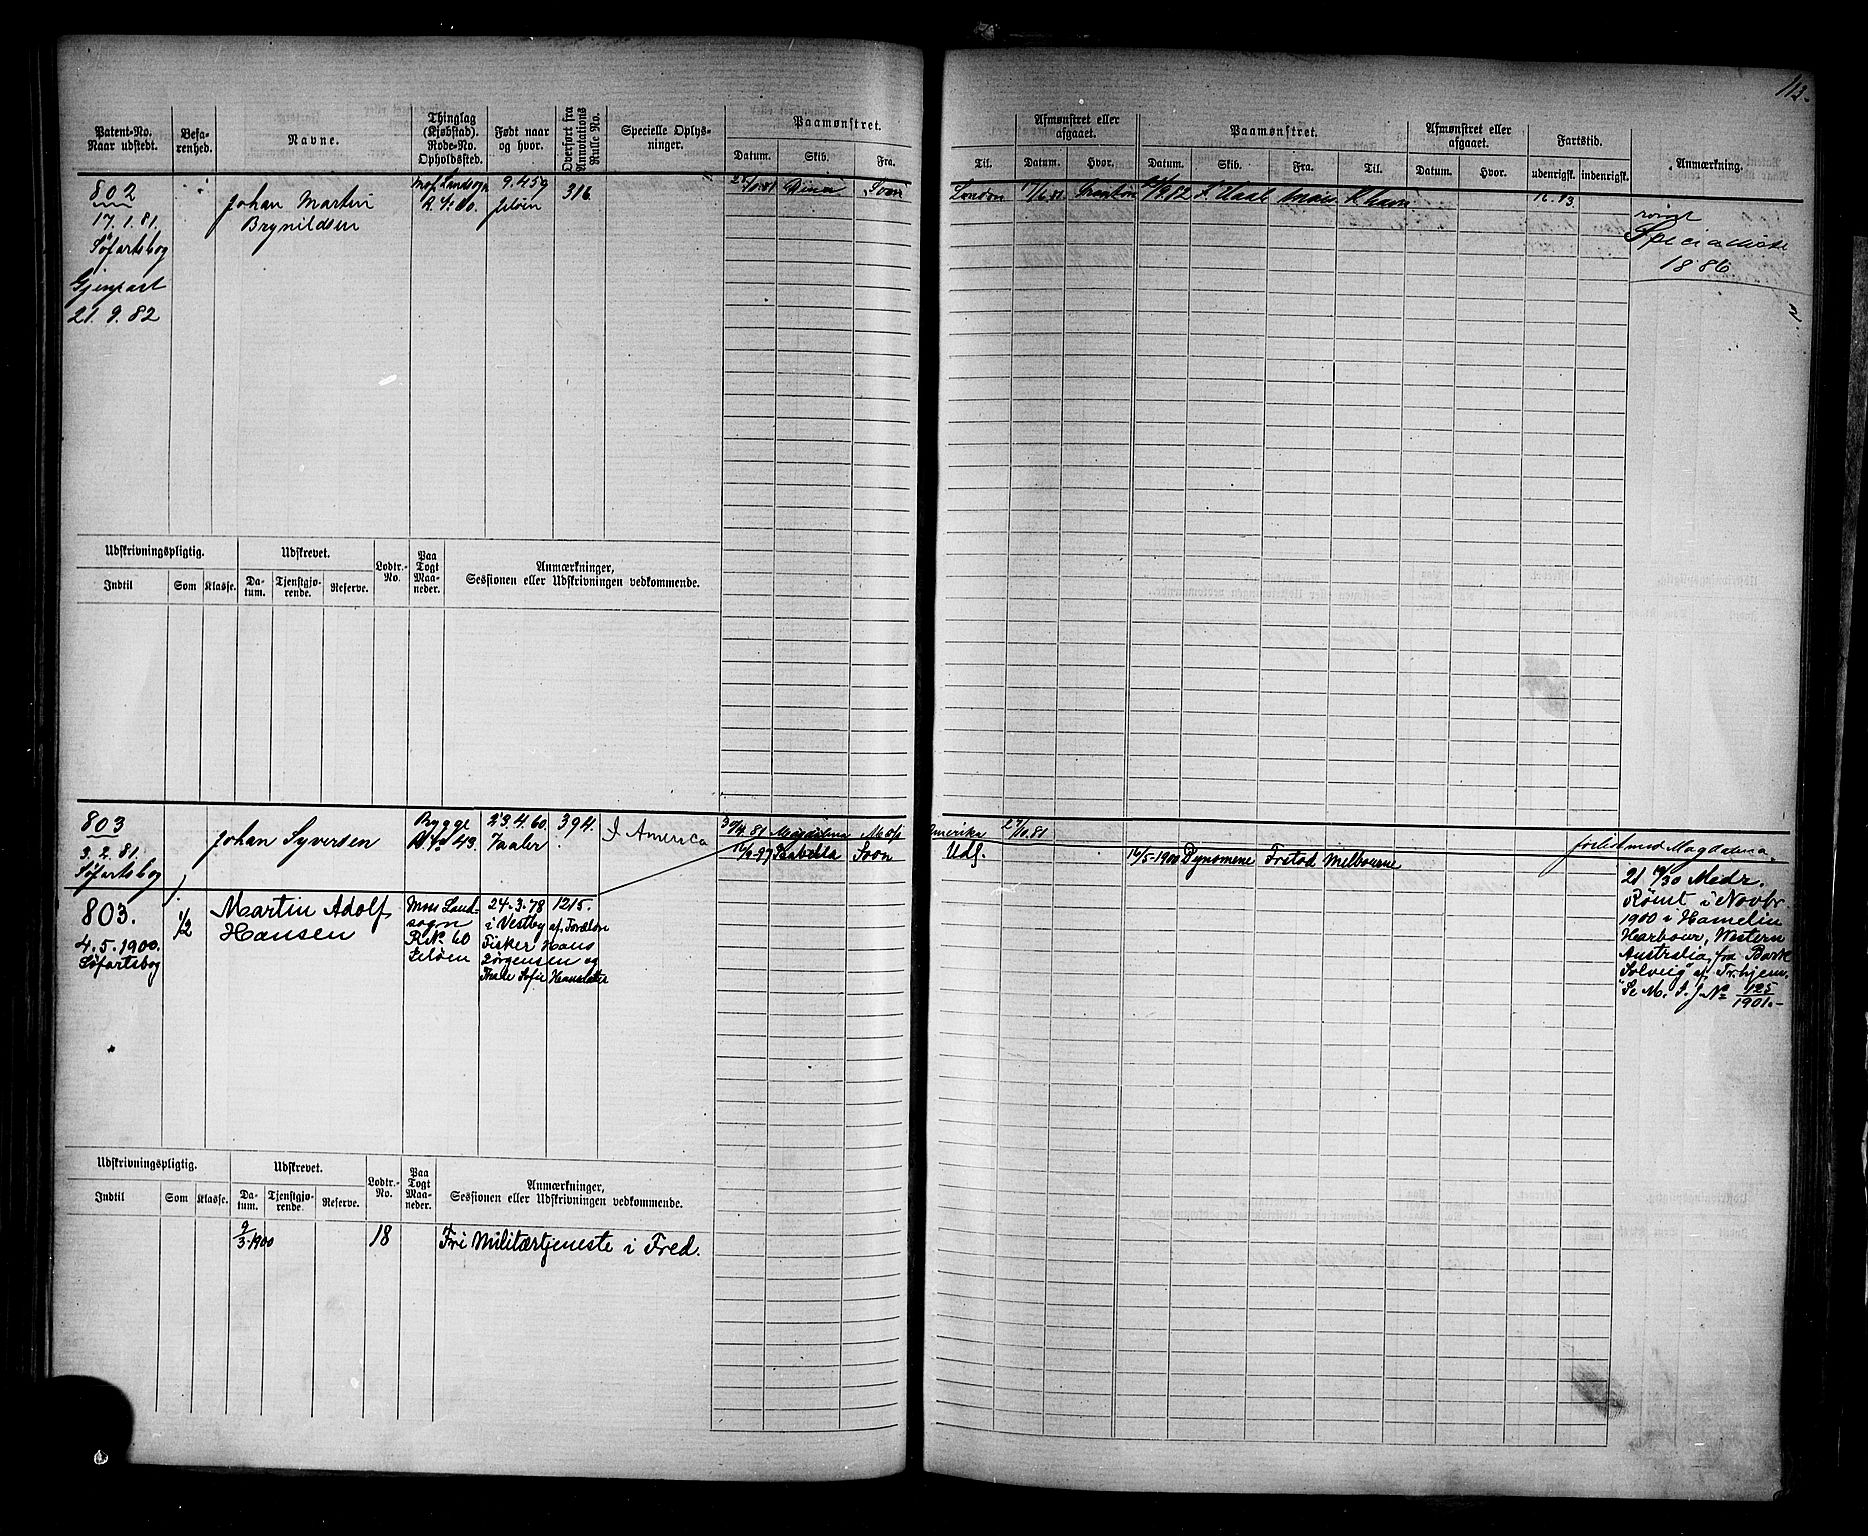 113.
Patent-No. Naar udstedt.
Befarenhed.
Navne.
Thinglag (Kjøbstad). Rode-No. Opholdssted.
Født naar og hvor.
Overført fra Annotations Rulle No.
Specielle Oplysninger.
Paamønstret.
Datum. Skib. Fra. Til.
Afmønstret eller afgaaet.
Datum. Hvor.
Paamønstret.
Datum. Skib. Fra. Til.
Afmønstret eller afgaaet.
Datum. Hvor.
Fartstid.
udenrigsk. indenrigsk.
Anmærkning.
802
17.1.81.
Søfartsbog
Gjenpart
21.9.82
Johan Martin
Brynildsen
Jeløen
9.4.59
316
Soon
London
Khavn
1886
Udskrivningspligtig.
Indtil Som Klasse.
Udskrevet.
Datum. Tjenstgjørende. Reserve.
Lodtr.-No.
Paa Togt Maaneder.
Anmærkninger,
Sessionen eller Udskrivningen vedkommende.
803
3.2.81.
Søfartsbog
Johan Syversen
Bygge
R. No 43.
23.4.60.
Vaaler
394.
I America
30/4 81 Magdalena Moss Amerika 27/10.81
forlist med Magdalena.
803.
4.5.1900.
Søfartsbog
1/2
Martin Adolf
Hansen
Moss Landsogn
R.No. 60
Jeløen
24.3.78
i Vestby af Foreldre
Fisker Hans
Jørgensen og
Thale Sofie Hansdatter
1215.
Isabella Soon Udl.
16/5-1900 Dynomene Frstad Melbourne
21 Medr.
Rømt i Novbr
1900 i Hamelin
Harbour, Western
Australia, fra Bark
"Solveig" af Trhjem.
Se M. I. J No 125/1901.-
Udskrivningspligtig.
Indtil Som Klasse.
Udskrevet.
Datum. Tjenstgjørende. Reserve.
Lodtr.-No.
Paa Togt Maaneder.
Anmærkninger,
Sessionen eller Udskrivningen vedkommende.
9/3-1900
18
Fri Militærtjeneste i Fred.